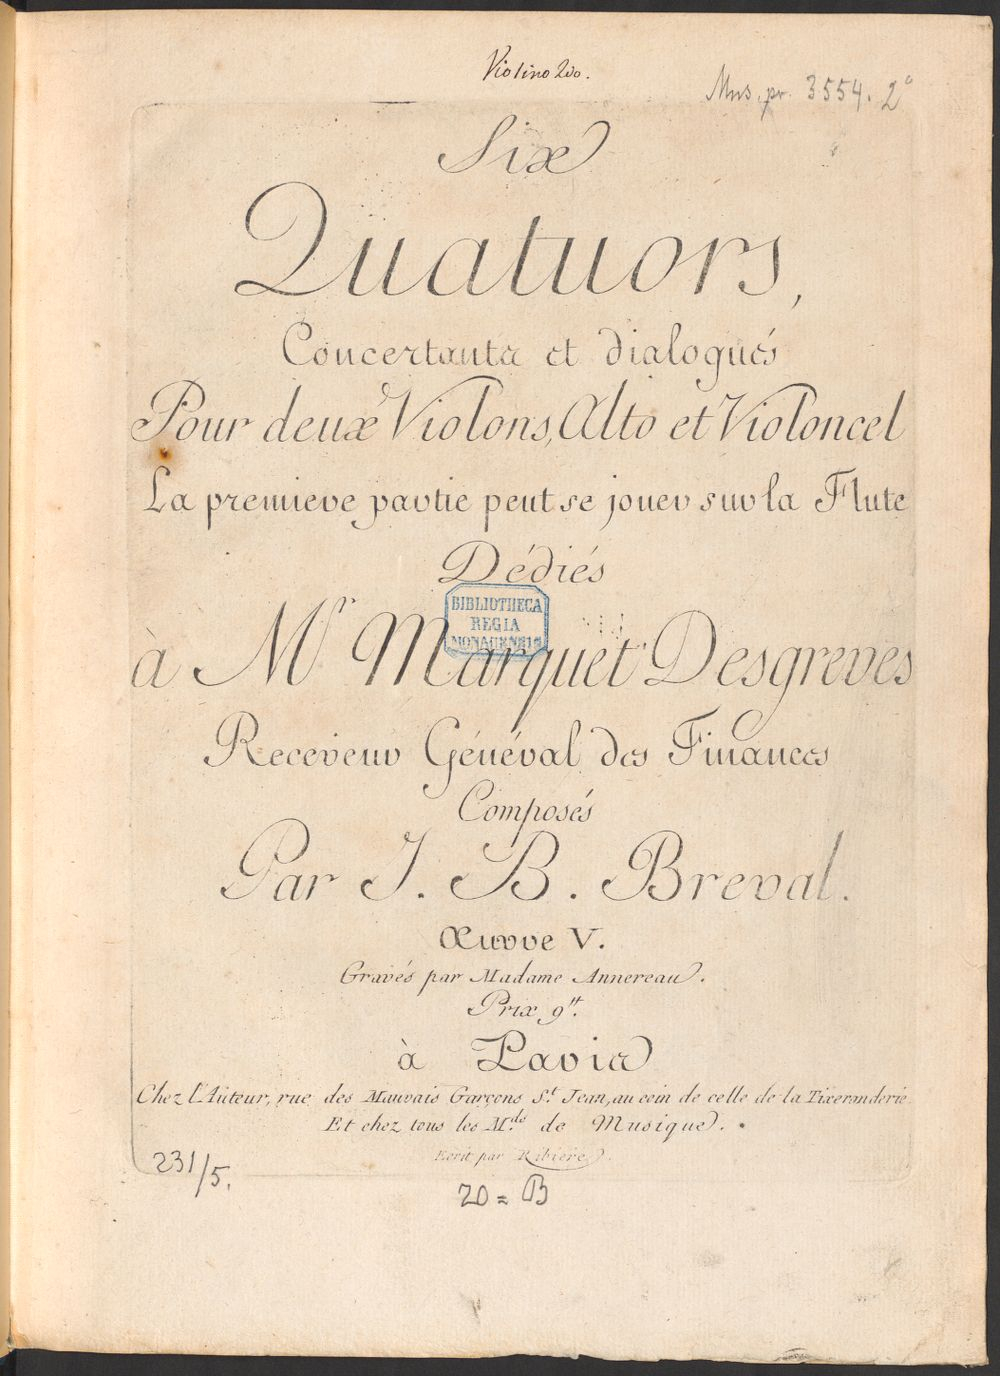 Violino 2do.
Mus. pr. 3554. 2°
Six
Quatuors,
Concertants et dialogués
Pour deux Violons, Alto et Violoncel
La premiere partie peut se jouer sur la Flute
Dédiés
BIBLIOTHECA
REGIA
MONACENSIS
à Mr. Marquet Desgreves
Receveur Général des Finances
Composés
Par J. B. Breval.
Œuvre V.
Gravés par Madame Annereau.
Prix 9tt.
à Paris
Chez l'Auteur, rue des Mauvais Garçons St. Jean, au coin de celle de la Tixeranderie
Et chez tous les Mds. de Musique.
Ecrit par Ribiere.
231/5.
20 = B